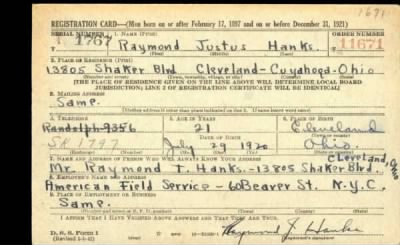 1671
REGISTRATION CARD—(Men born on or after February 17, 1897 and on or before December 31, 1921)
SERIAL NUMBER 1. NAME (Print) ORDER NUMBER
1767 Raymond Justus Hanks. 11671
2. PLACE OF RESIDENCE (Print)
13805 Shaker Blvd Cleveland-Cuyahoga-Ohio
[THE PLACE OF RESIDENCE GIVEN ON THE LINE ABOVE WILL DETERMINE LOCAL BOARD
JURISDICTION; LINE 2 OF REGISTRATION CERTIFICATE WILL BE IDENTICAL]
3. MAILING ADDRESS
Same.
4. TELEPHONE 5. AGE IN YEARS 6. PLACE OF BIRTH
Randolph-9356 21 Cleveland
DATE OF BIRTH
SK 1797 July 29 1920 Ohio.
7. NAME AND ADDRESS OF PERSON WHO WILL ALWAYS KNOW YOUR ADDRESS
Cleveland, Ohio
Mr. Raymond T. Hanks.-13805 Shaker Blvd.
8. EMPLOYER'S NAME AND ADDRESS
American Field Service-60 Beaver St. N.Y.C.
9. PLACE OF EMPLOYMENT OR BUSINESS
Same.
I AFFIRM THAT I HAVE VERIFIED ABOVE ANSWERS AND THAT THEY ARE TRUE.
D. S. S. Form 1
Raymond J. Hanks